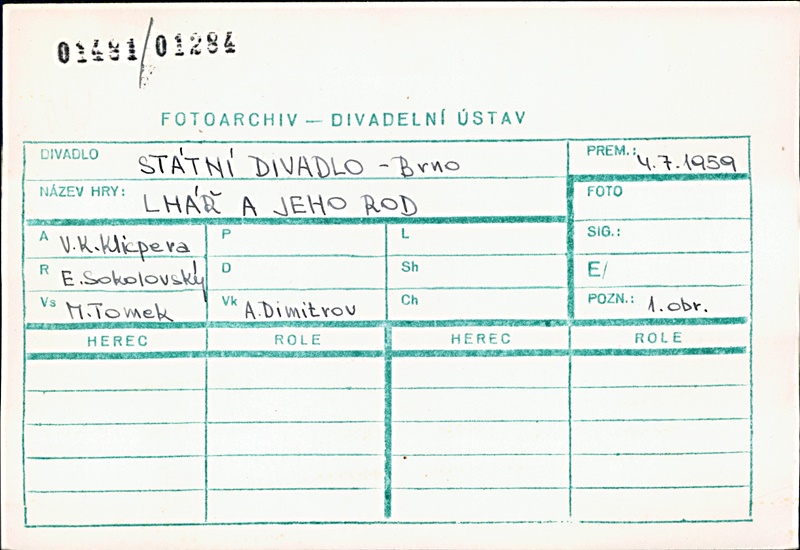 01481/01284
FOTOARCHIV — DIVADELNÍ ÚSTAV
DIVADLO STÁTNÍ DIVADLO - Brno PREM.: 4.7.1959
NÁZEV HRY: LHÁŘ A JEHO ROD FOTO
A V.K.Klicpera P L SIG.:
R E.Sokolovský D Sh E/
Vs M.Tomek Vk A.Dimitrov Ch POZN.: 1.obr.
HEREC ROLE HEREC ROLE